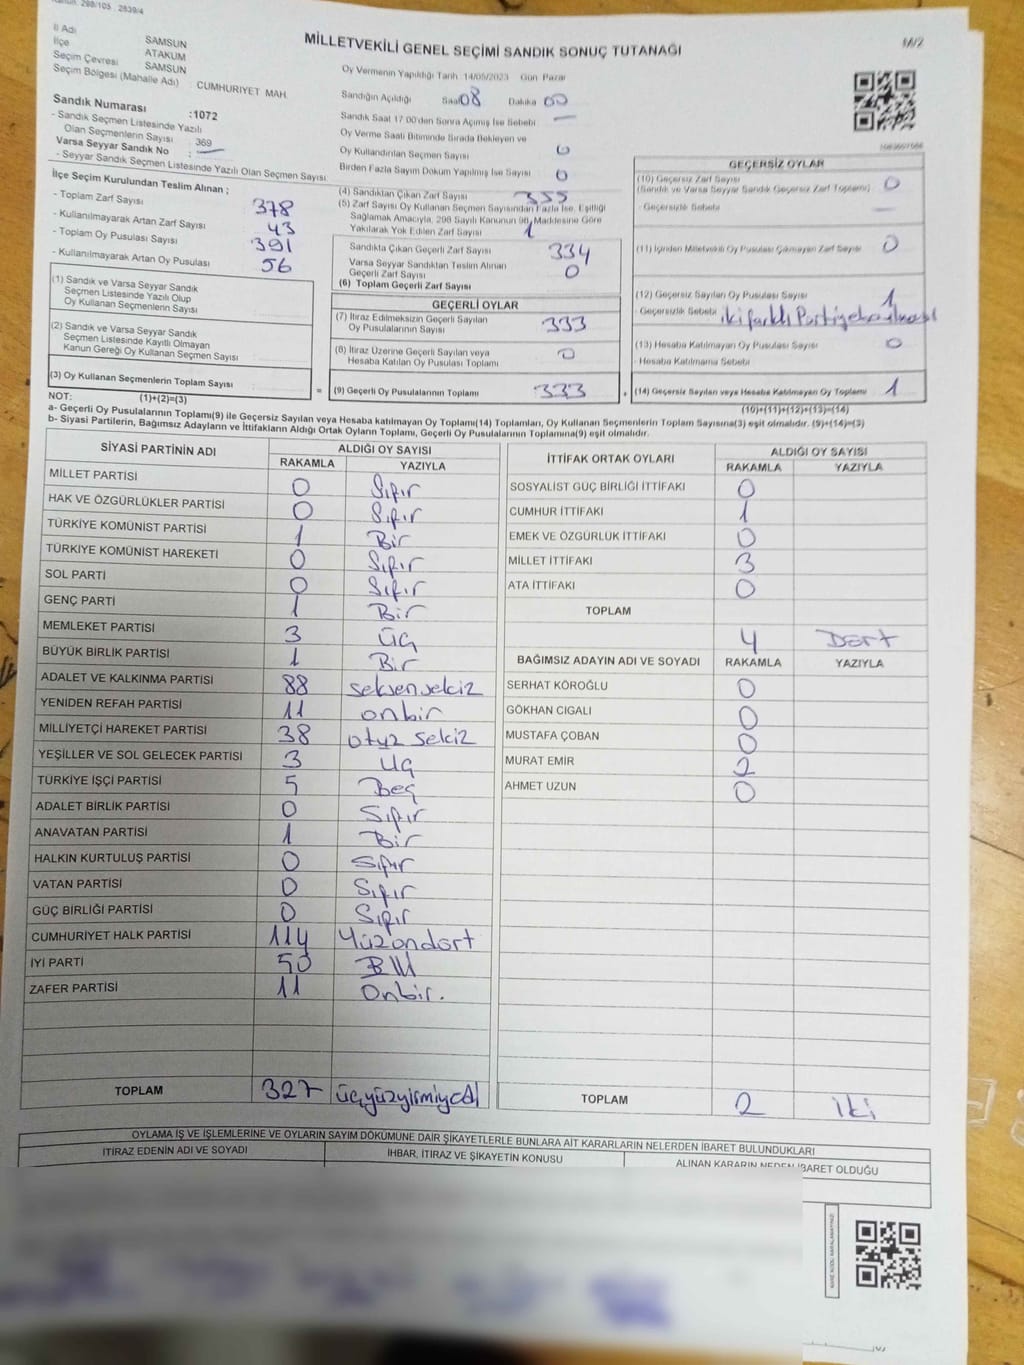 Kanun: 298/105 . 2839/4
MİLLETVEKİLİ GENEL SEÇİMİ SANDIK SONUÇ TUTANAĞI
İl Adı SAMSUN
İlçe ATAKUM
Seçim Çevresi SAMSUN
Seçim Bölgesi (Mahalle Adı) CUMHURIYET MAH.
Sandık Numarası :1072
- Sandık Seçmen Listesinde Yazılı
Olan Seçmenlerin Sayısı : 369
Varsa Seyyar Sandık No : —
- Seyyar Sandık Seçmen Listesinde Yazılı Olan Seçmen Sayısı
Oy Vermenin Yapıldığı Tarih: 14/05/2023 Gün Pazar
Sandığın Açıldığı Saat 08 Dakika 00
Sandık Saat 17:00'den Sonra Açılmış İse Sebebi —
Oy Verme Saati Bitiminde Sırada Bekleyen ve
Oy Kullandırılan Seçmen Sayısı 0
Birden Fazla Sayım Döküm Yapılmış İse Sayısı 0
İlçe Seçim Kurulundan Teslim Alınan ;
- Toplam Zarf Sayısı 378
- Kullanılmayarak Artan Zarf Sayısı 43
- Toplam Oy Pusulası Sayısı 391
- Kullanılmayarak Artan Oy Pusulası 56
(1) Sandık ve Varsa Seyyar Sandık
Seçmen Listesinde Yazılı Olup
Oy Kullanan Seçmenlerin Sayısı
(2) Sandık ve Varsa Seyyar Sandık
Seçmen Listesinde Kayıtlı Olmayan
Kanun Gereği Oy Kullanan Seçmen Sayısı
(3) Oy Kullanan Seçmenlerin Toplam Sayısı
(4) Sandıktan Çıkan Zarf Sayısı 355
(5) Zarf Sayısı Oy Kullanan Seçmen Sayısından Fazla İse, Eşitliği
Sağlamak Amacıyla, 298 Sayılı Kanunun 98. Maddesine Göre
Yakılarak Yok Edilen Zarf Sayısı 1
Sandıkta Çıkan Geçerli Zarf Sayısı 334
Varsa Seyyar Sandıktan Teslim Alınan
Geçerli Zarf Sayısı 0
(6) Toplam Geçerli Zarf Sayısı
GEÇERLİ OYLAR
(7) İtiraz Edilmeksizin Geçerli Sayılan
Oy Pusulalarının Sayısı 333
(8) İtiraz Üzerine Geçerli Sayılan veya
Hesaba Katılan Oy Pusulası Toplamı 0
= (9) Geçerli Oy Pusulalarının Toplamı 333 +
GEÇERSİZ OYLAR
(10) Geçersiz Zarf Sayısı
(Sandık ve Varsa Seyyar Sandık Geçersiz Zarf Toplamı) 0
- Geçersizlik Sebebi —
(11) İçinden Milletvekili Oy Pusulası Çıkmayan Zarf Sayısı 0
(12) Geçersiz Sayılan Oy Pusulası Sayısı 1
- Geçersizlik Sebebi iki farklı Partiye
(13) Hesaba Katılmayan Oy Pusulası Sayısı 0
- Hesaba Katılmama Sebebi
(14) Geçersiz Sayılan veya Hesaba Katılmayan Oy Toplamı 1
NOT: (1)+(2)=(3) (10)+(11)+(12)+(13)=(14)
a- Geçerli Oy Pusulalarının Toplamı(9) ile Geçersiz Sayılan veya Hesaba katılmayan Oy Toplamı(14) Toplamları, Oy Kullanan Seçmenlerin Toplam Sayısına(3) eşit olmalıdır. (9)+(14)=(3)
b- Siyasi Partilerin, Bağımsız Adayların ve İttifakların Aldığı Ortak Oyların Toplamı, Geçerli Oy Pusulalarının Toplamına(9) eşit olmalıdır.
SİYASİ PARTİNİN ADI ALDIĞI OY SAYISI
RAKAMLA YAZIYLA
MİLLET PARTİSİ 0 Sıfır
HAK VE ÖZGÜRLÜKLER PARTİSİ 0 Sıfır
TÜRKİYE KOMÜNİST PARTİSİ 1 Bir
TÜRKİYE KOMÜNİST HAREKETİ 0 Sıfır
SOL PARTİ 0 Sıfır
GENÇ PARTİ 1 Bir
MEMLEKET PARTİSİ 3 Üç
BÜYÜK BİRLİK PARTİSİ 1 Bir
ADALET VE KALKINMA PARTİSİ 88 seksensekiz
YENİDEN REFAH PARTİSİ 11 onbir
MİLLİYETÇİ HAREKET PARTİSİ 38 otuz sekiz
YEŞİLLER VE SOL GELECEK PARTİSİ 3 Üç
TÜRKİYE İŞÇİ PARTİSİ 5 Beş
ADALET BİRLİK PARTİSİ 0 Sıfır
ANAVATAN PARTİSİ 1 Bir
HALKIN KURTULUŞ PARTİSİ 0 Sıfır
VATAN PARTİSİ 0 Sıfır
GÜÇ BİRLİĞİ PARTİSİ 0 Sıfır
CUMHURİYET HALK PARTİSİ 114 Yüzondört
İYİ PARTİ 50
ZAFER PARTİSİ 11 Onbir.
TOPLAM 327 üçyüzyirmiyedi
İTTİFAK ORTAK OYLARI ALDIĞI OY SAYISI
RAKAMLA YAZIYLA
SOSYALİST GÜÇ BİRLİĞİ İTTİFAKI 0
CUMHUR İTTİFAKI 1
EMEK VE ÖZGÜRLÜK İTTİFAKI 0
MİLLET İTTİFAKI 3
ATA İTTİFAKI 0
TOPLAM
4 Dört
BAĞIMSIZ ADAYIN ADI VE SOYADI RAKAMLA YAZIYLA
SERHAT KÖROĞLU 0
GÖKHAN CIGALI 0
MUSTAFA ÇOBAN 0
MURAT EMİR 2
AHMET UZUN 0
TOPLAM 2 iki
OYLAMA İŞ VE İŞLEMLERİNE VE OYLARIN SAYIM DÖKÜMÜNE DAİR ŞİKAYETLERLE BUNLARA AİT KARARLARIN NELERDEN İBARET BULUNDUKLARI
İTİRAZ EDENİN ADI VE SOYADI İHBAR, İTİRAZ VE ŞİKAYETİN KONUSU ALINAN KARARIN NEDEN İBARET OLDUĞU